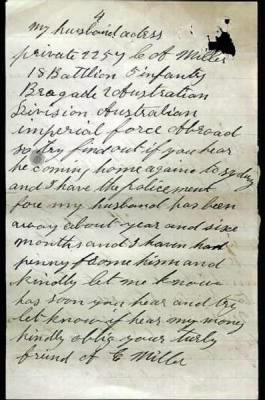 4
my husband adress
private 2257 C A Miller
18 Battlion 5 infanty
Beagade 2 Australian
Division Australian
imperial force Abroad
so try find out if you hear
he coming home againe to sydney
and I have the police ment
fore my husband has been
away about year and sixe
months and I haven had
penny frome him and
kindly let me know
has soon you hear and try
let know if hear my money
kindly oblig your turly
friend of E Miller